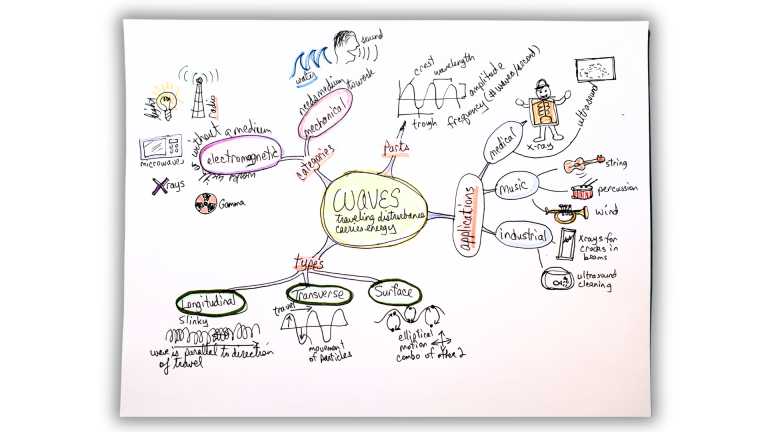 WAVES
traveling disturbance
carries energy
categories
mechanical
needs medium
to work
water
sound
electromagnetic
without a medium
light
radio
microwaves
X rays
Gamma
Parts
crest
wavelength
amplitude
frequency (# waves/second)
trough
applications
medical
x-ray
ultrasound
music
string
percussion
wind
industrial
xrays for
cracks in
beams
ultrasound
cleaning
types
Longitudinal
Slinky
wave is parallel to direction
of travel
Transverse
travel
movement
of particles
Surface
elliptical
motion
combo of other 2